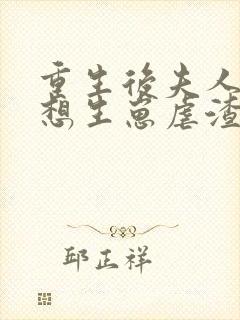 重生後夫人
想生崽虐渣
邱正祥